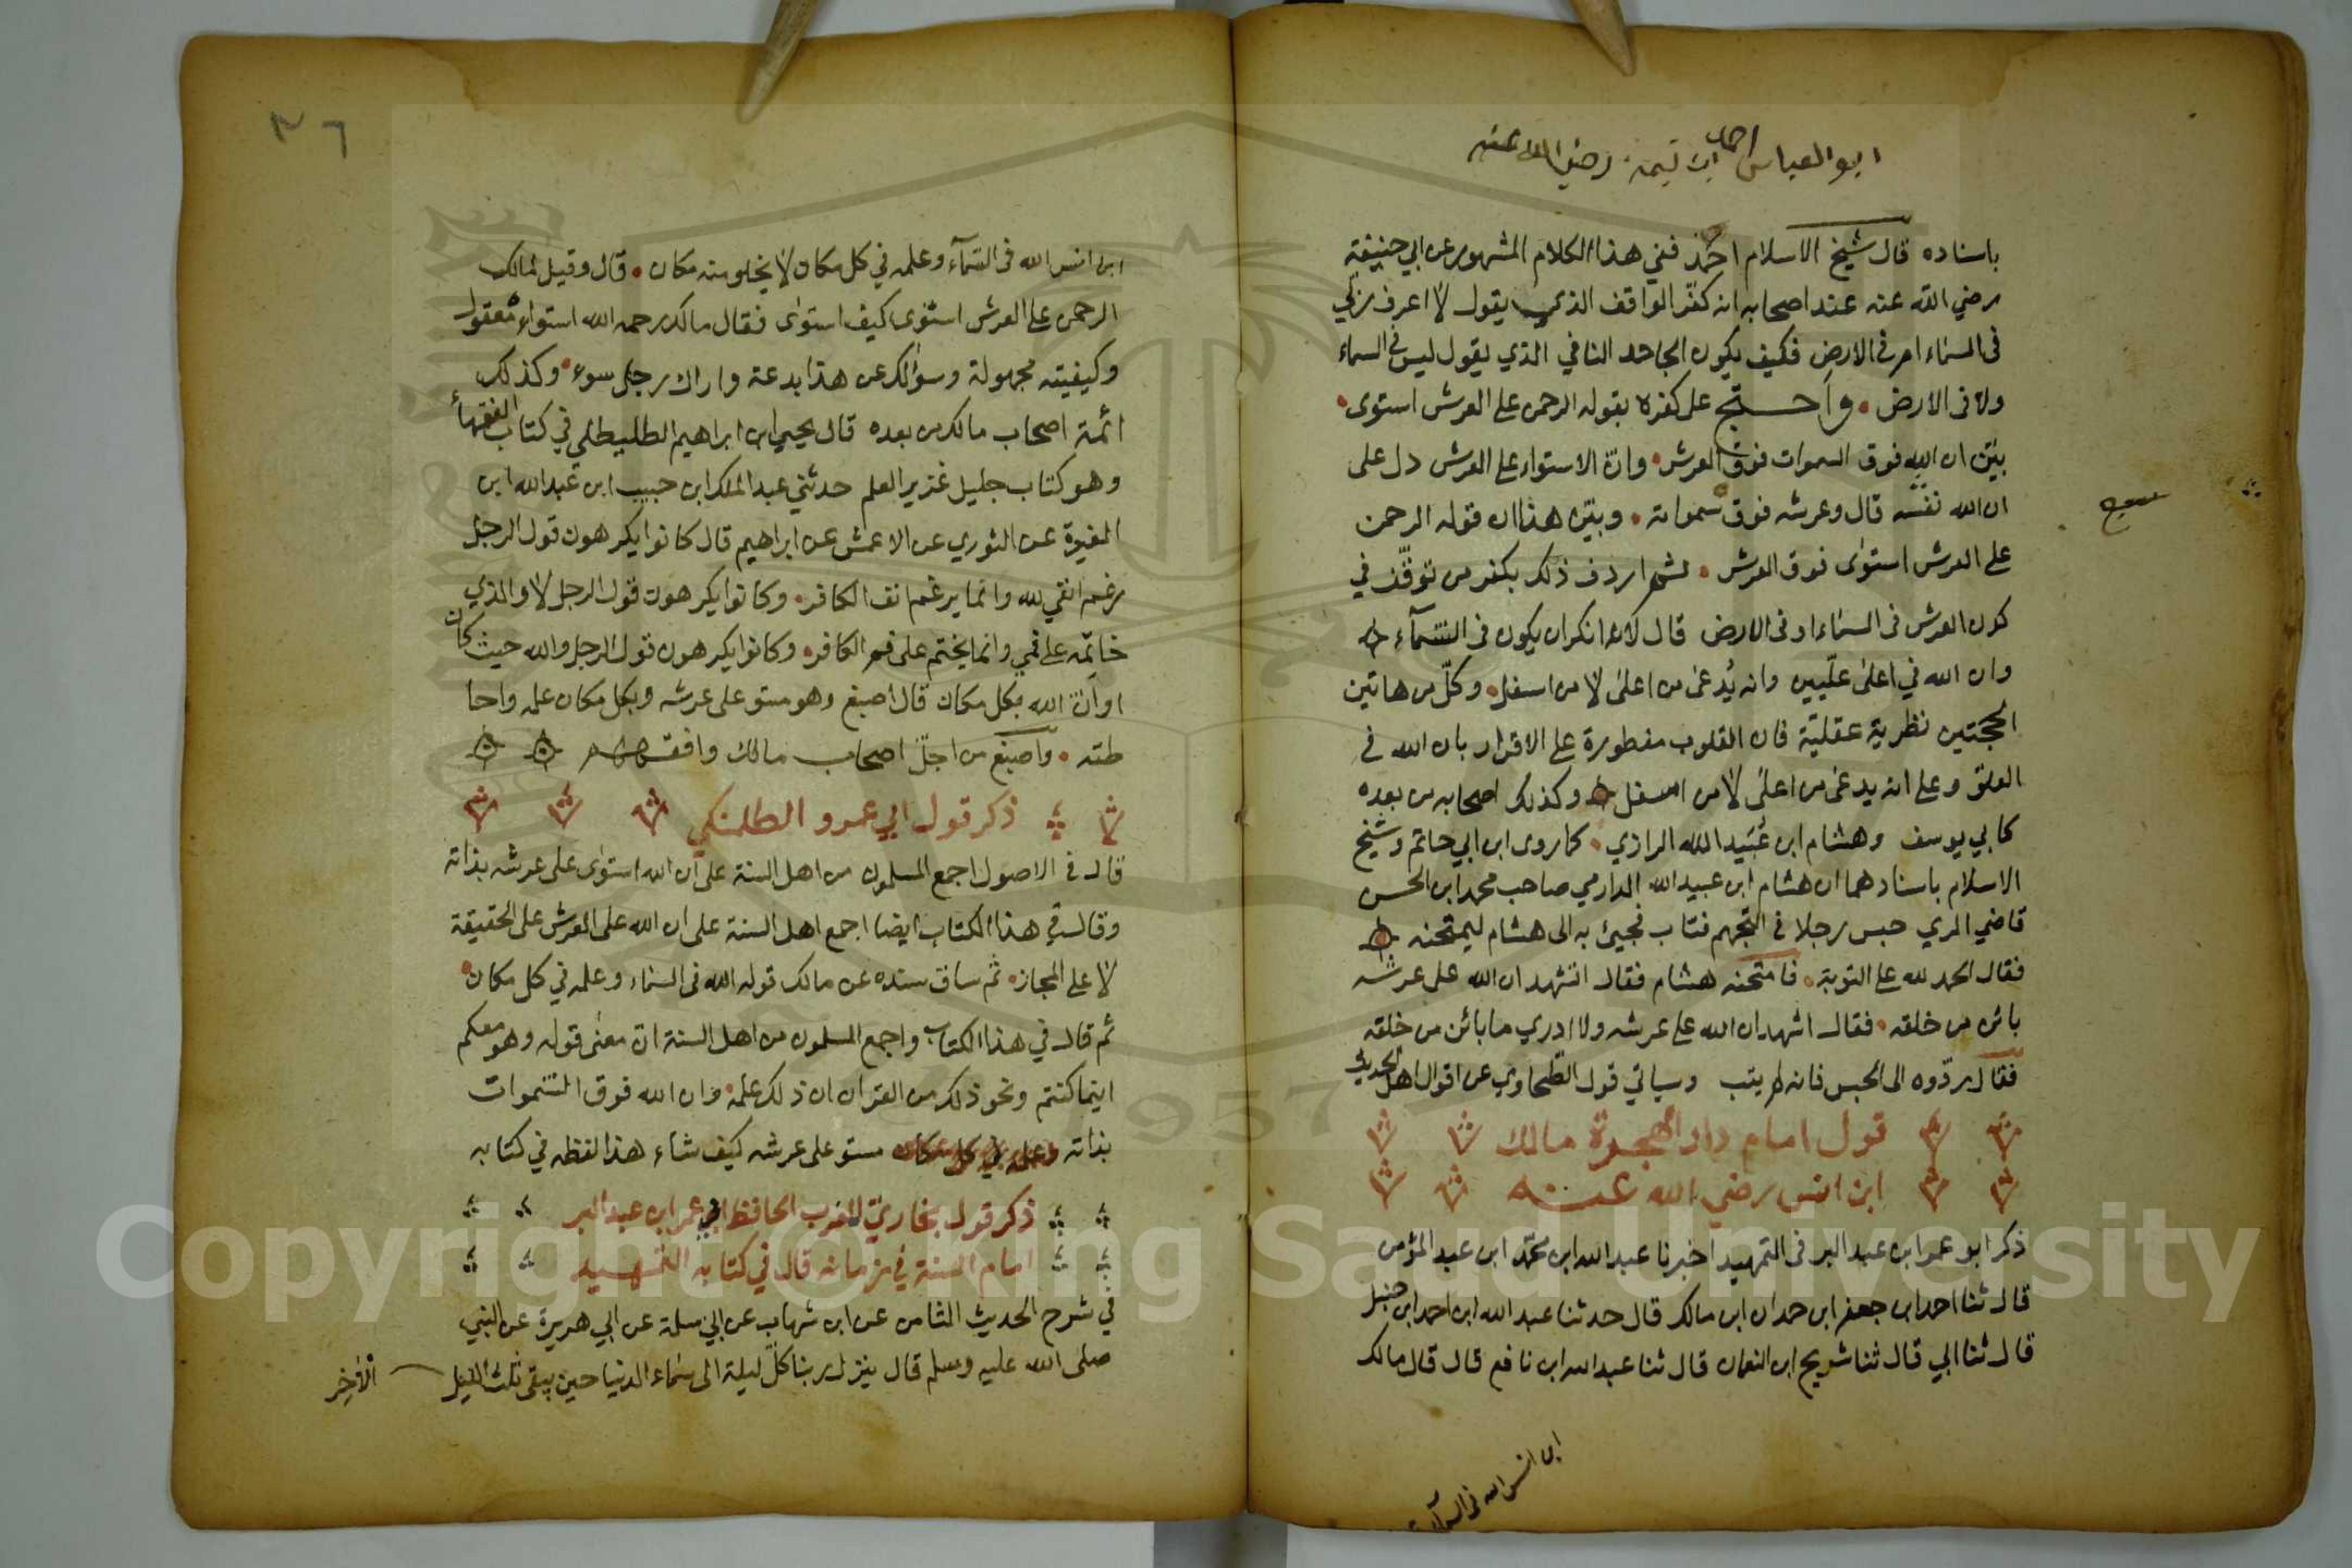 ابو العباس احمد ابن تيمية رضي الله عنه
باسناده قال شيخ الاسلام احمد ففي هذا الكلام المشهور عن ابي حنيفة
رضي الله عنه عند اصحابه انه كفّر الواقف الذي يقول لا اعرف ربي
في السماء ام في الارض فكيف يكون الجاحد النافي الذي يقول ليس في السماء
ولا في الارض • واحتج على كفره بقوله الرحمن على العرش استوى •
بيّن ان الله فوق السموات فوق العرش • وان الاستواء على العرش دل على
ان الله نفسه قال وعرشه فوق سمواته • وبيّن هذا ان قوله الرحمن
على العرش استوى فوق العرش • ثم اردف ذلك بكفر من توقّف في
كون العرش في السماء او في الارض قال لانه انكر ان يكون في السّمآء
وان الله في اعلى علّيين وانه يُدعى من اعلى لا من اسفل • وكلّ من هاتين
الحجّتين نظرية عقليّة فان القلوب مفطورة على الاقرار بان الله في
العلوّ وعلى انه يدعى من اعلى لا من اسفل وكذلك اصحابه من بعده
كابي يوسف وهشام ابن عُبَيد الله الرازي • كما روى ابن ابي حاتم وشيخ
الاسلام باسنادهما ان هشام ابن عبيد الله الدارمي صاحب محمد ابن الحسن
قاضي المري حبس رجلا في التجهم فتاب فجيئ به الى هشام ليمتحنه
فقال الحمد لله على التوبة • فامتحنه هشام فقال اتشهد ان الله على عرشه
بائن من خلقه • فقال اشهد ان الله على عرشه ولا ادري ما بائن من خلقه
فقال ردّوه الى الحبس فانه لم يتب وسياتي قول الطّحاوي عن اقوال اهل الحديث
قول امام دار الهجرة مالك
ابن انس رضي الله عنه
ذكر ابو عمر ابن عبد البر في التمهيد اخبرنا عبد الله ابن محمّد ابن عبد المؤمن
قال ثنا احمد ابن جعفر ابن حمدان ابن مالك قال حدثنا عبد الله ابن احمد ابن حنبل
قال ثنا ابي قال ثنا شريح ابن النعمان قال ثنا عبد الله ابن نافع قال قال مالك
ابن انس الله في السمآء
٣٦
ابن انس الله في السّمآء وعلمه في كل مكان لا يخلو منه مكان • قال وقيل لمالك
الرحمن على العرش استوى كيف استوى فقال مالك رحمه الله استواءه معقول
وكيفيته مجهولة وسؤالك عن هذا بدعة واراك رجل سوء • وكذلك
ائمة اصحاب مالك من بعده قال يحيى ابن ابراهيم الطليطلي في كتاب الفقهاء
وهو كتاب جليل غزير العلم حدثني عبد الملك ابن حبيب ابن عبد الله ابن
المغيرة عن الثوري عن الاعمش عن ابراهيم قال كانوا يكرهون قول الرجل
رغم انفي لله وانما يرغم انف الكافر • وكانوا يكرهون قول الرجل لا والذي
خاتمه على فمي وانما يختم على فم الكافر • وكانوا يكرهون قول الرجل والله حيث كان
او انّ الله بكل مكان قال اصبغ وهو مستو على عرشه وبكل مكان علمه واحا
طته • واصبغ من اجلّ اصحاب مالك وافقههم
ذكر قول ابي عمرو الطلمنكي
قال في الاصول اجمع المسلمون من اهل السنة على ان الله استوى على عرشه بذاته
وقال في هذا الكتاب ايضا اجمع اهل السنة على ان الله على العرش على الحقيقة
لا على المجاز • ثم ساق سنده عن مالك قوله الله في السماء وعلمه في كل مكان •
ثم قال في هذا الكتاب واجمع المسلمون من اهل السنة ان معنى قوله وهو معكم
اينما كنتم ونحو ذلك من القران ان ذلك علمه • وان الله فوق السّموات
بذاته مستو على عرشه كيف شاء هذا لفظه في كتابه
ذكر قول بخاريّ المغرب الحافظ ابي عمر ابن عبد البر
امام السنة في زمانه قال في كتابه التمهيد
في شرح الحديث الثامن عن ابن شهاب عن ابي سلمة عن ابي هريرة عن النبي
صلى الله عليه وسلم قال ينزل ربنا كلّ ليلة الى سماء الدنيا حين يبقى ثلث الليل الاخِر
Copyright © King Saud University
1957